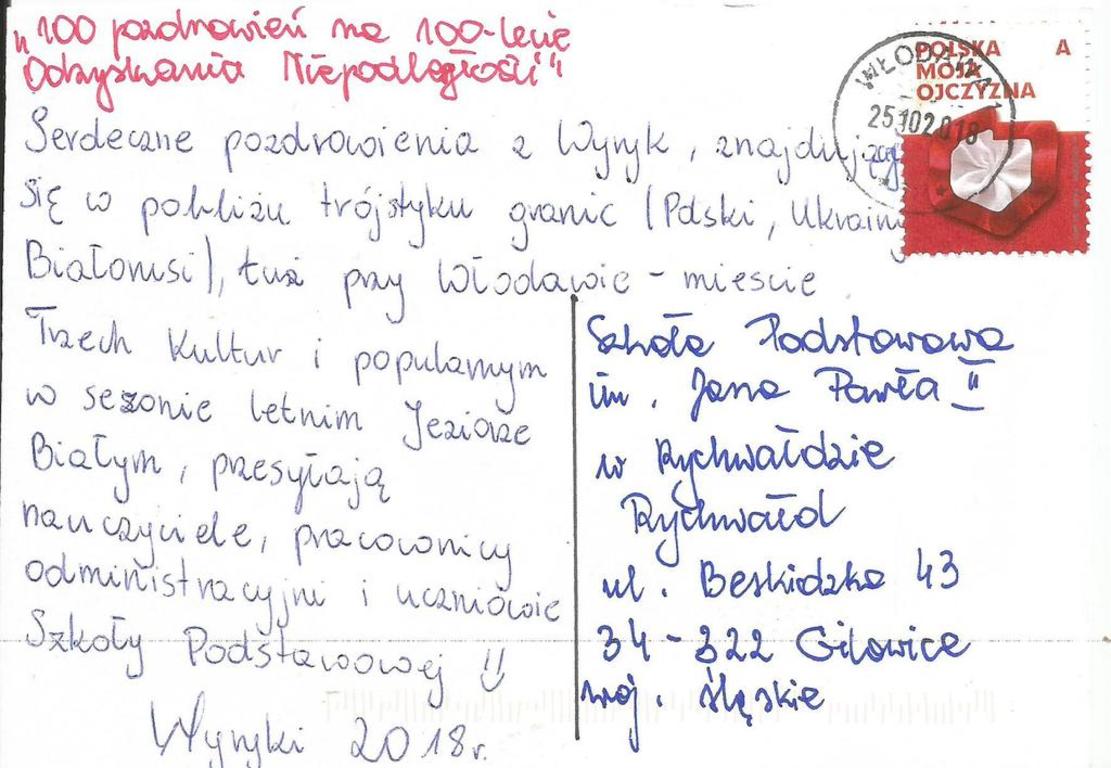 "100 pozdrowień na 100-lecie
Odzyskania Niepodległości"
POLSKA A
MOJA
OJCZYZNA
WŁODAWA 1
25.10.2018
Serdeczne pozdrowienia z Wyryk, znajdujący
się w pobliżu trójstyku granic (Polski, Ukrainy
Białorusi), tuż przy Włodawie - mieście
Trzech Kultur i popularnym
w sezonie letnim Jeziorze
Białym, przesyłają
nauczyciele, pracownicy
administracyjni i uczniowie
Szkoły Podstawowej !!
Wyryki 2018r.
Szkoła Podstawowa
im. Jana Pawła II
w Rychwałdzie
Rychwałd
ul. Beskidzka 43
34-322 Gilowice
woj. śląskie